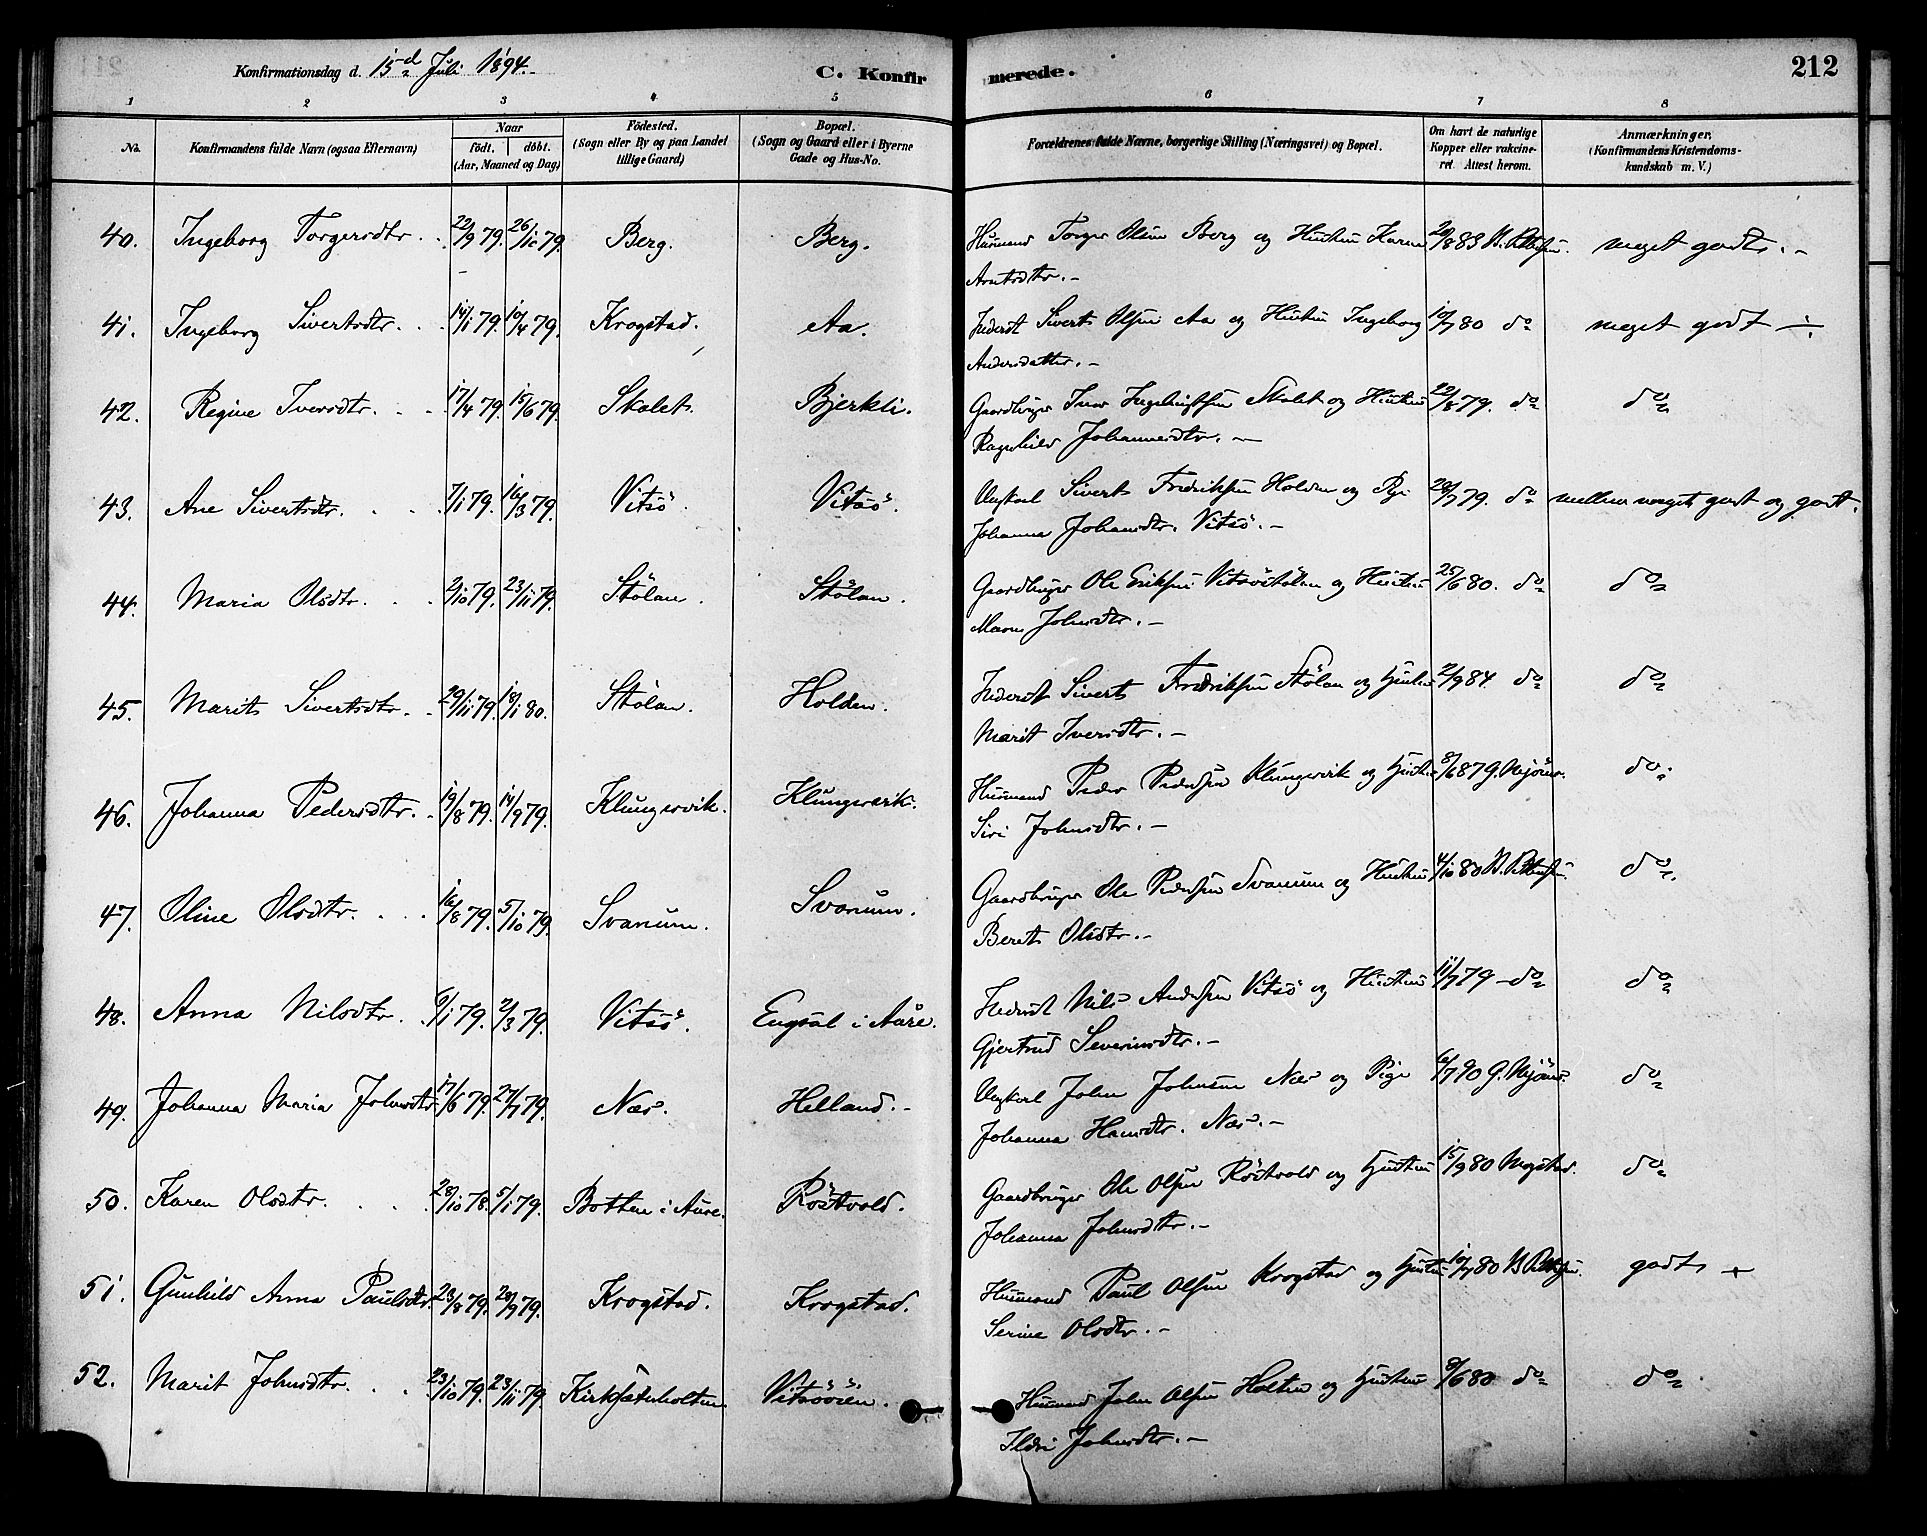 Konfirmationsdag d. 15d Juli 1894.-
C. Konfirmerede.
212
1 2 3 4 5 6 7 8
No. Konfirmandens fulde Navn (ogsaa Efternavn) Naar födt. döbt. (Aar, Maaned og Dag) Födested. (Sogn eller By og paa Landet tillige Gaard) Bopæl. (Sogn og Gaard eller i Byerne Gade og Hus-No. Forældrenes fulde Navne, borgerlige Stilling (Næringsvei) og Bopæl. Om havt de naturlige Kopper eller vakcineret. Attest herom. Anmærkninger. (Konfirmandens Kristendomskundskab m. V.)
40. Ingeborg Torgersdtr. 22/9 79. 26/10 79. Berg. Berg. Husmand Torger Olsen Berg og Hustru Karen 29/8 83 meget godt. -
Arntsdtr. -
41. Ingeborg Sivertsdtr. 14/1 79. 10/4 79. Krogstad. Aa. Inderst Sivert Olsen Aa og Hustru Ingeborg 10/7 80 do meget godt ÷.
Andersdatter. -
42. Regine Iversdtr. 17/4 79. 15/6 79. Skalet. Bjerkli. Gaardbruger Iver Ingebrigtsen Skalet og Hustru 22/8 79. do do
Ragnhild Johannesdtr. -
43. Ane Sivertsdtr. 7/1 79. 16/3 79. Vitsö. Vitsö. Ungkarl Sivert Fredriksen Holden og Pige 28/7 79. do mellem meget godt og godt.
Johanna Johansdtr. Vitsö. -
44. Maria Olsdtr. 2/10 79. 23/11 79. Stölan. Stölan. Gaardbruger Ole Eriksen Vitsöstölan og Hustru 25/6 80. do do
Maren Johnsdtr. -
45. Marit Sivertsdtr. 29/11 79. 18/1 80. Stölan. Holden. Inderst Sivert Fredriksen Stölan og Hustru 2/9 84. do do
Marit Iversdtr. -
46. Johanna Pedersdtr. 19/8 79. 14/9 79. Klungervik. Klungervik. Husmand Peder Pedersen Klungervik og Hustru 8/6 87 do.
Siri Johnsdtr. -
47. Oline Olsdtr. 16/8 79. 5/10 79. Svanum. Svanum. Gaardbruger Ole Pedersen Svanum og Hustru 4/10 80 do.
Beret Olsdtr. -
48. Anna Nilsdtr. 6/1 79. 2/3 79. Vitsö. Engdal i Aure. Inderst Nils Andersen Vitsö og Hustru 11/7 79 - do do
Gjertrud Severinsdtr. -
49. Johanna Maria Johnsdtr. 17/6 79. 27/7 79. Næs. Helland. - Ungkarl John Johnsen Næs og Pige do
Johanna Hansdtr. Næs. -
50. Karen Olsdtr. 28/10 78. 5/1 79. Botten i Aure. Röstvold. Gaardbruger Ole Olsen Röstvold og Hustru 15/9 80 do
Johanna Johnsdtr. -
51. Gunhild Anna Paulsdtr. 23/8 79. 28/9 79. Krogstad. Krogstad. Husmand Paul Olsen Krogstad og Hustru 10/7 80 godt +
Serine Olsdtr. -
52. Marit Johnsdtr. 23/10 79. 23/11 79. Kirksæterholten Vitsöören. Husmand John Olsen Holten og Hustru 8/6 80 do do
Ildri Johnsdtr. -